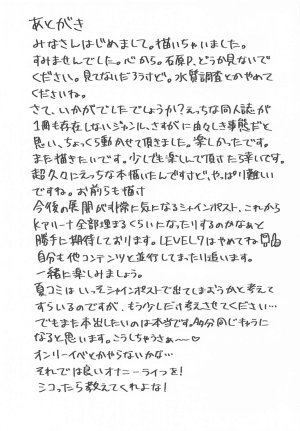 あとがき
みなさんはじめまして。描いちゃいました。
すみませんでした。心から。石原P、どうか見ないで
ください。見てないだろうけど。水質調査とかやめて
くださいね。
さて、いかがでしたでしょうか?えっちな同人誌が
1冊も存在しないジャンル、さすがに由々しき事態だと
思い、ちょっくら動かせて頂きました。楽しかったです。
また描きたいです。少しでも楽しんで頂けたら幸いです。
超久々にえっちな本描いたんですけど、やっぱり難しい
ですね。お前らも描け
今後の展開が非常に気になるシャインポスト、これから
Kアリーナ全部埋まるくらいになったりするのかなぁと
勝手に期待しております。LEVEL7はやめてね
自分も他コンテンツと並行してまったり追います。
一緒に楽しみましょう。
夏コミはいっそシャインポストで出てしまおうかと考えて
すらいるのですが、もう少しだけ考えさせてください…
でもまた本出したいのは本当です。多分同じちょうに
なると思います。こうしちゃうさぁ〜♡
オンリーイベとかやらないかな…
それでは良いオナニーライフを!
シコったら教えてくれよな!